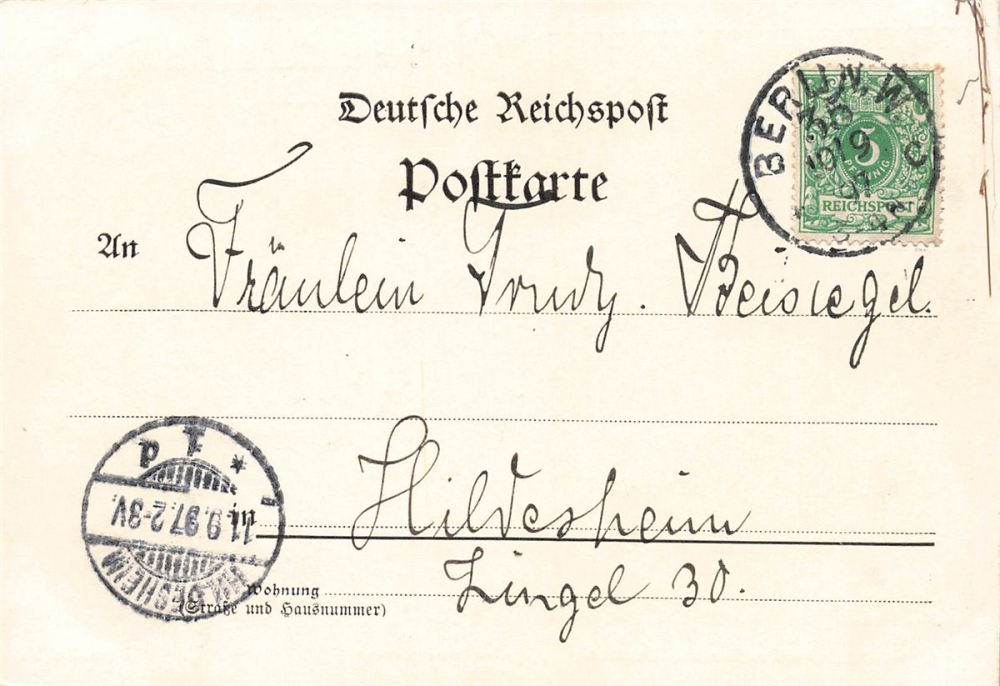 Deutsche Reichspost
Postkarte
BERLIN, W.
10/9
97
5
PFENNIG
REICHSPOST
An
Fräulein Trudy.
Hildesheim
in
11.9.97.2-3V.
HILDESHEIM
Wohnung
(Straße und Hausnummer)
Lingel 30.